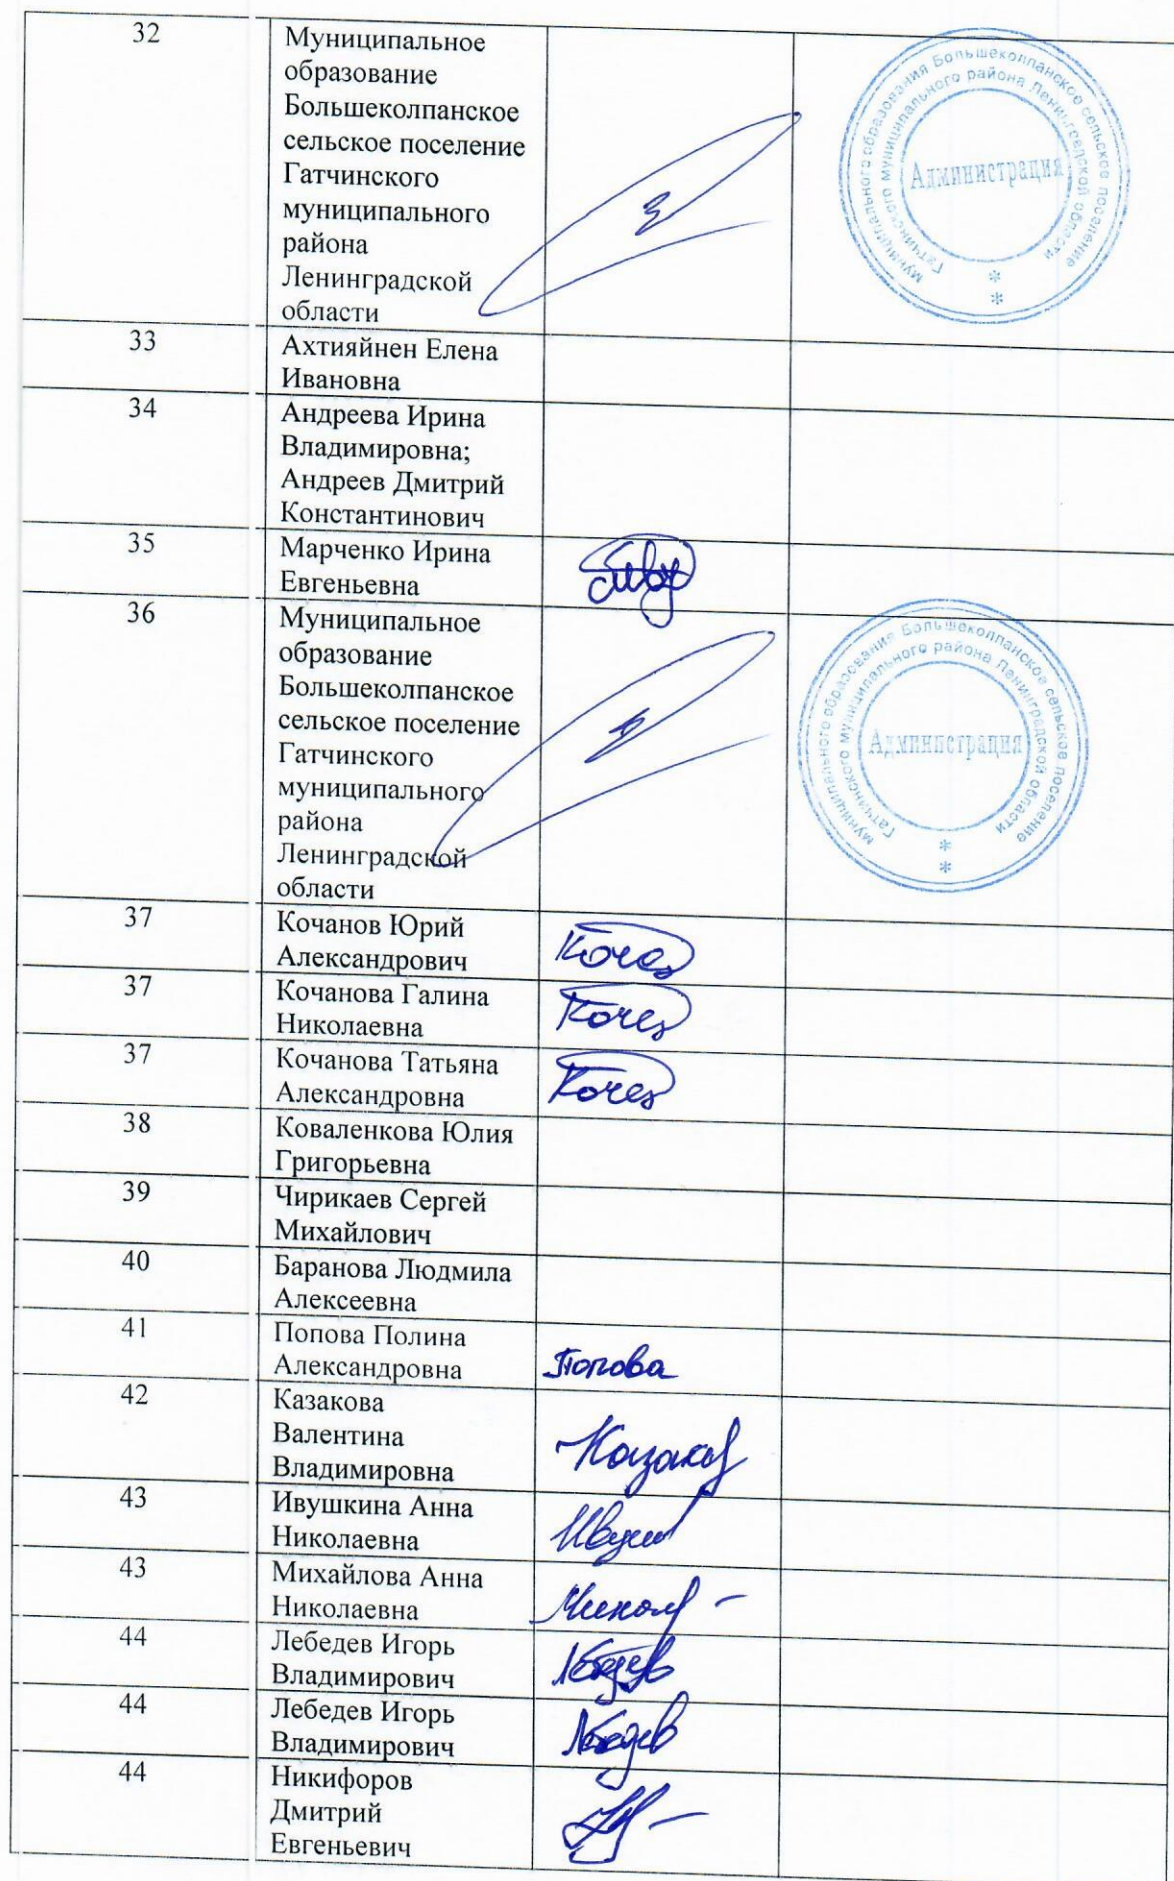 32
Муниципальное
образование
Большеколпанское
сельское поселение
Гатчинского
муниципального
района
Ленинградской
области
муниципального образования Большеколпанское сельское поселение
Гатчинского муниципального района Ленинградской области
Администрация
33
Ахтияйнен Елена
Ивановна
34
Андреева Ирина
Владимировна;
Андреев Дмитрий
Константинович
35
Марченко Ирина
Евгеньевна
36
Муниципальное
образование
Большеколпанское
сельское поселение
Гатчинского
муниципального
района
Ленинградской
области
муниципального образования Большеколпанское сельское поселение
Гатчинского муниципального района Ленинградской области
Администрация
37
Кочанов Юрий
Александрович
37
Кочанова Галина
Николаевна
37
Кочанова Татьяна
Александровна
38
Коваленкова Юлия
Григорьевна
39
Чирикаев Сергей
Михайлович
40
Баранова Людмила
Алексеевна
41
Попова Полина
Александровна
Попова
42
Казакова
Валентина
Владимировна
43
Ивушкина Анна
Николаевна
43
Михайлова Анна
Николаевна
44
Лебедев Игорь
Владимирович
44
Лебедев Игорь
Владимирович
44
Никифоров
Дмитрий
Евгеньевич